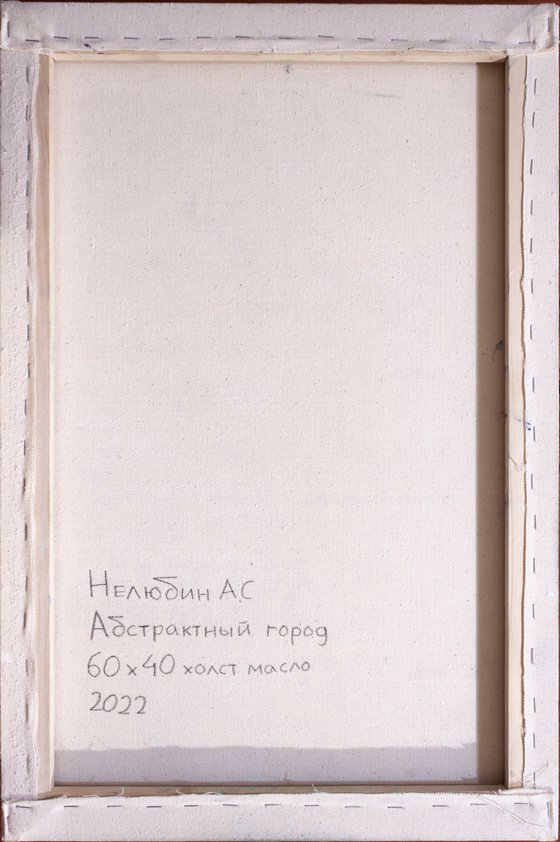 Нелюбин А.С
Абстрактный город
60х40 холст масло
2022